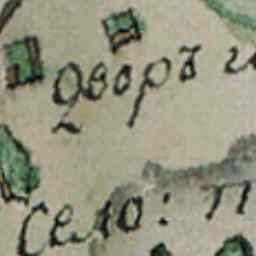 дворъ и
село: п